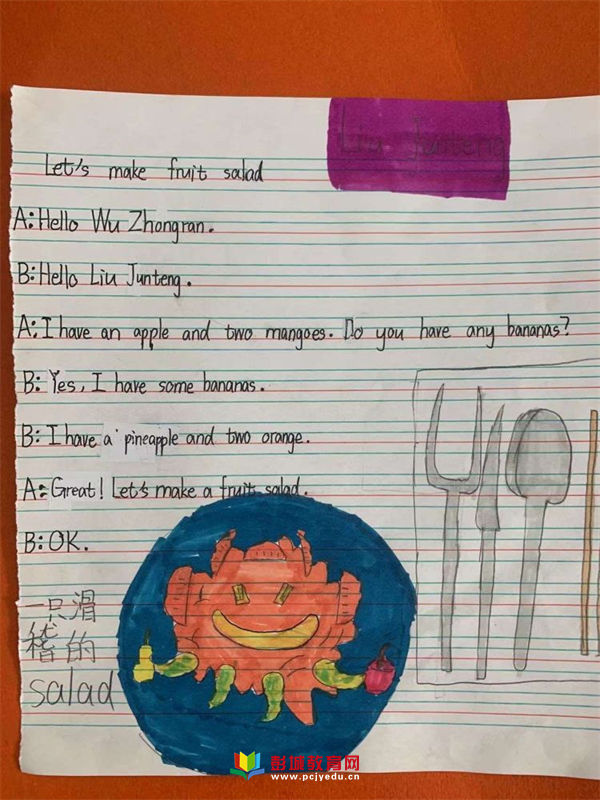 Liu Junteng
Let's make fruit salad
A: Hello Wu Zhongran.
B: Hello Liu Junteng.
A: I have an apple and two mangoes. Do you have any bananas?
B: Yes, I have some bananas.
B: I have a pineapple and two orange.
A: Great! Let's make a fruit salad.
B: OK.
一只滑
稽的
salad
彭城教育网
www.pcjyedu.cn